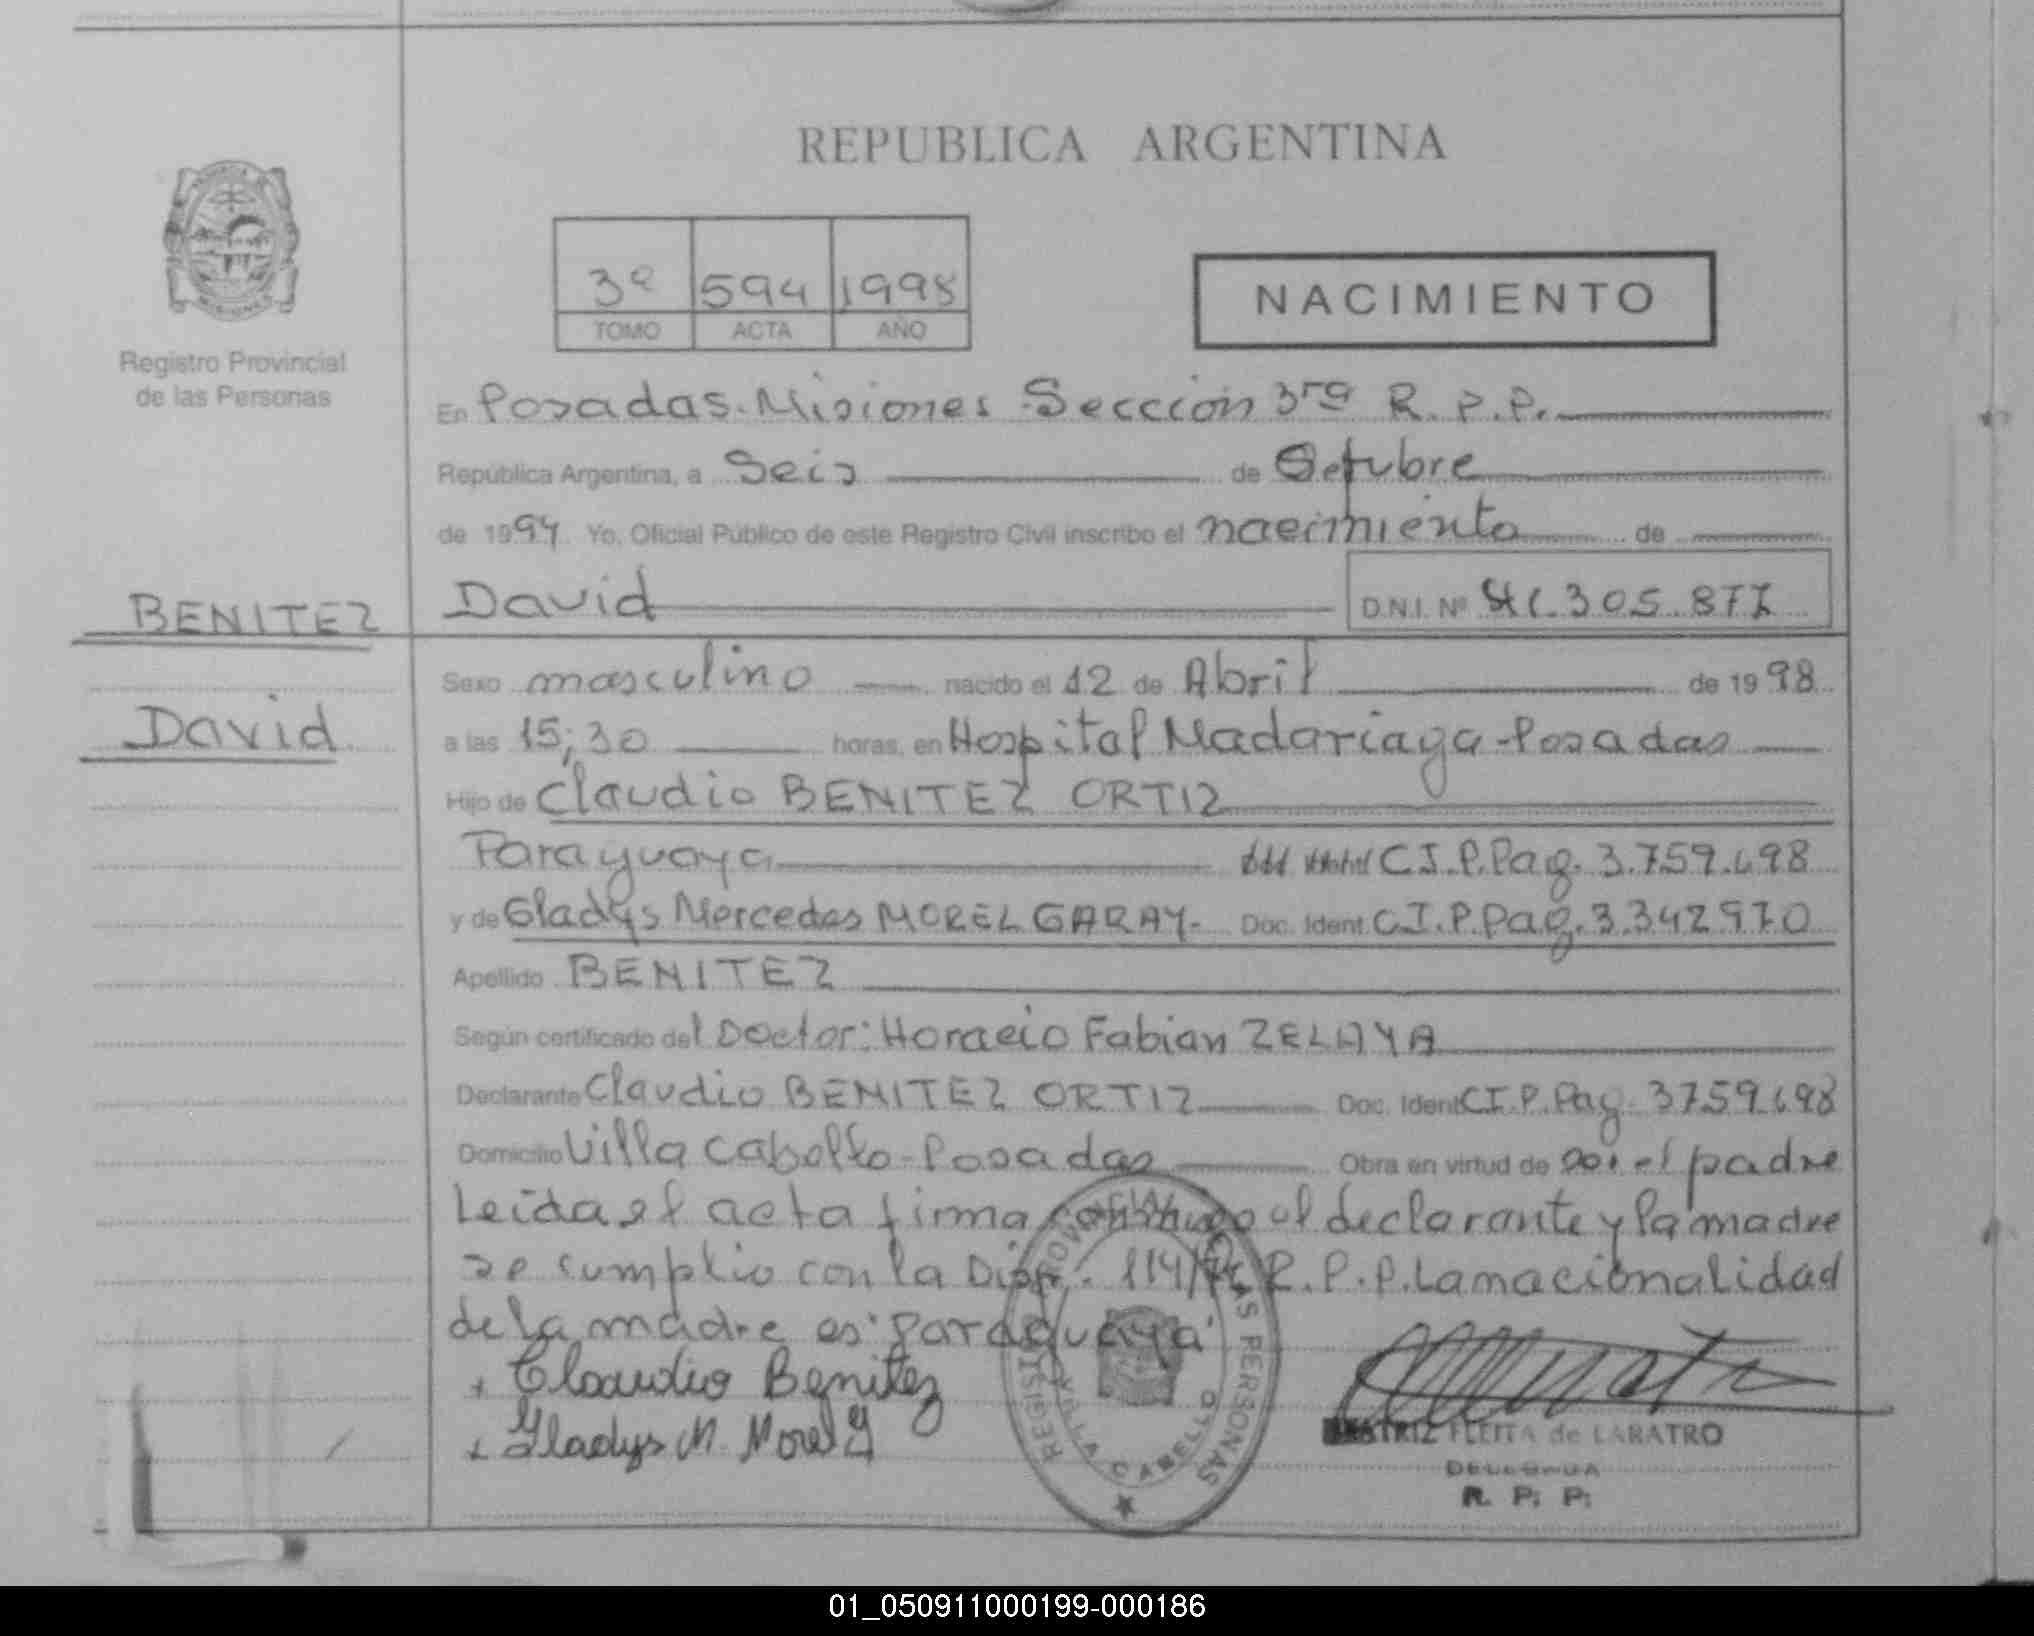 REPUBLICA ARGENTINA
3º 594 1998
TOMO ACTA AÑO
NACIMIENTO
Registro Provincial
de las Personas
En Posadas. Misiones Sección 3ra R. P. P.
República Argentina, a Seis de Octubre
de 1994 Yo, Oficial Público de este Registro Civil inscribo el nacimiento de
BENITEZ
David D.N.I. Nº 305.877
Sexo masculino nacido el 12 de Abril de 1998
David
a las 15;30 horas, en Hospital Madariaga - Posadas
Hijo de Claudio BENITEZ ORTIZ
Paraguaya C.I.P.Pag. 3.759.698
y de Gladys Mercedes MOREL GARAY- Doc. Ident C.I.P.Pag. 3.342970
Apellido BENITEZ
Según certificado del Doctor: Horacio Fabian ZELAYA
Declarante Claudio BENITEZ ORTIZ Doc. Ident C.I.P.Pag. 3759698
Domicilio Villa Cabello - Posadas Obra en virtud de ser el padre
Leida el acta firma conmigo el declarante y la madre
se cumplio con la Disp. 114/ R.P.P. La nacionalidad
de la madre es "paraguaya"
Claudio Benitez
Gladys M. Morel G
REGISTRO PROVINCIAL DE LAS PERSONAS
VILLA CABELLO
BEATRIZ FLEITA de LABATRO
DELEGADA
R. P. P.
01_050911000199-000186